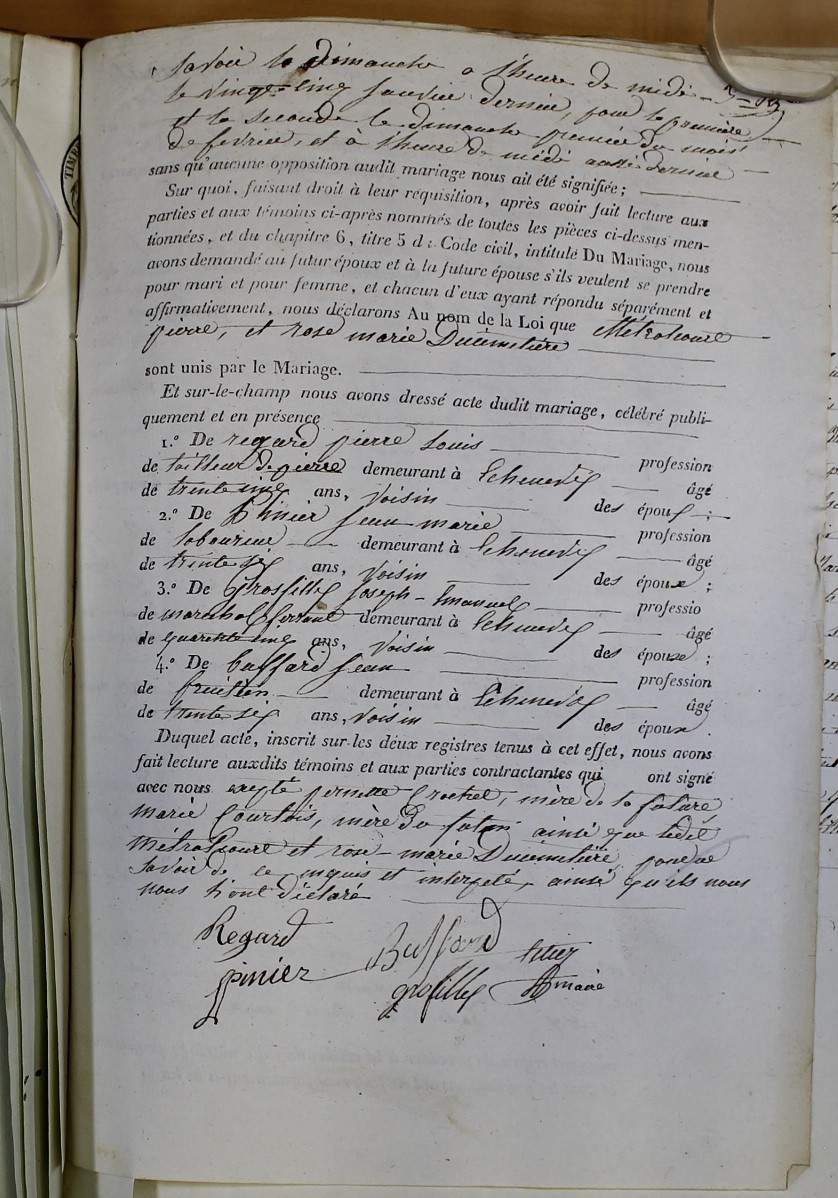 savoir le dimanche à l'heure de midi
le vingt-cinq janvier dernier, pour la première
et la seconde le dimanche premier du mois
de fevrier, et à l'heure de midi aussi dernier
sans qu'aucune opposition audit mariage nous ait été signifiée ;
Sur quoi, faisant droit à leur réquisition, après avoir fait lecture aux
parties et aux témoins ci-après nommés de toutes les pièces ci-dessus men-
tionnées, et du chapitre 6, titre 5 du Code civil, intitulé Du Mariage, nous
avons demandé au futur époux et à la future épouse s'ils veulent se prendre
pour mari et pour femme, et chacun d'eux ayant répondu séparément et
affirmativement, nous déclarons Au nom de la Loi que Métralcourt
pierre, et rose marie Ducimetière
sont unis par le Mariage.
Et sur-le-champ nous avons dressé acte dudit mariage, célébré publi-
quement et en présence
1.° De regard pierre Louis profession
de tailleur de pierre demeurant à Echenevex âgé
de trente cinq ans, Voisin des époux ;
2.° De Pinier jean marie profession
de laboureur demeurant à Echenevex âgé
de trente six ans, Voisin des époux ;
3.° De Grosfilley joseph-Emanuel professio
de marechal ferrant demeurant à Echenevex âgé
de quarente cinq ans, Voisin des époux ;
4.° De buffard jean profession
de fruitier demeurant à Echenevex âgé
de trente six ans, Voisin des époux.
Duquel acte, inscrit sur les deux registres tenus à cet effet, nous avons
fait lecture auxdits témoins et aux parties contractantes qui ont signé
avec nous excepté pernette Crochet, mère de la future
marie Courtois, mère du futur ainsi que ledit
Métralcourt et rose-marie Ducimetière, pour ne
savoir de ce enquis et interpelé, ainsi qu'ils nous
nous l'ont déclaré
Regard
Buffard
pinier
grosfilley
maire